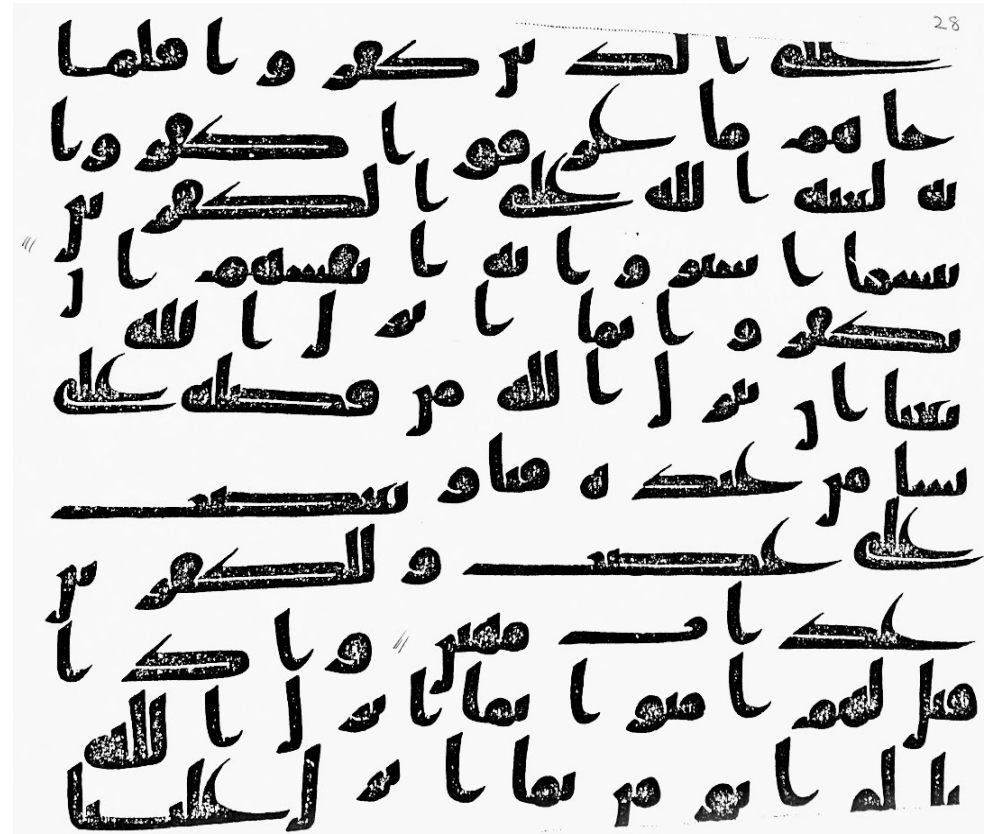 على الذين كفروا فلما
جاهم ما عرفوا كفروا
به فلعنه الله على الكفرين
بئسما اشتروا به انفسهم ان
يكفروا بما انزل الله
بغيا ان ينزل الله من فضله على
يشا من عبده فباو بغضب
على غضب وللكفرين
عذاب مهين واذا
قيل لهم امنوا بما انزل الله
قالوا نومن بما انزل علينا
28